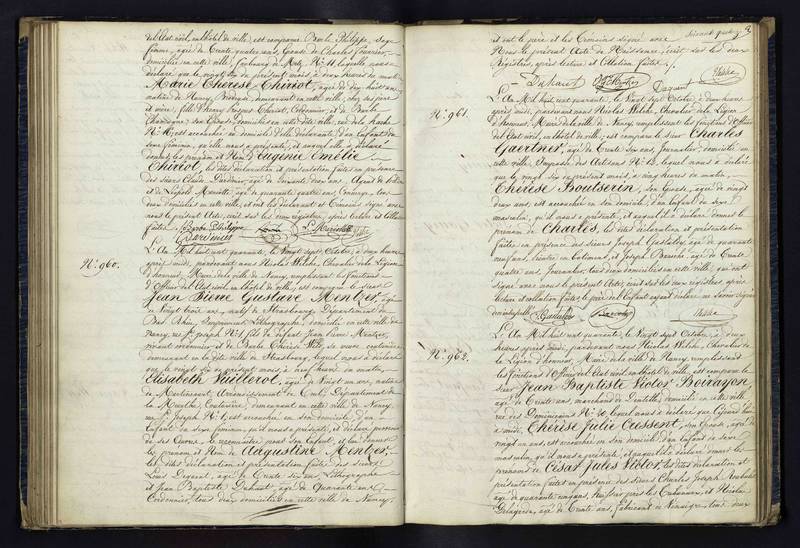 de l'état civil, en l'hôtel de ville, est comparue Barbe Philippe, Sage
femme, âgée de Trente quatre ans, Epouse de Charles
domiciliée en cette ville, faubourg de Metz, N° 11, laquelle nous a
déclaré que le vingt six du présent mois, à deux heures du matin
Marie Thérèse Chiriot, âgée de dix huit ans,
native de Nancy, Brodeuse, demeurant en cette ville, chez ses père
et mère, fille d'Henry Chiriot, et de Barbe
domiciliés en cette dite ville, rue de la
N° est accouchée au domicile d'Elle déclarante d'un Enfant du
sexe féminin, qu'elle nous a présenté, et auquel elle a déclaré
donner les prénom et Nom d'Eugénie Emélie
Chiriot, les dites déclaration et présentation faites en présence
des Sieurs Claude âgé de ans, Agent de Police
et de Léopold Mariotte, âgé de quarante quatre ans, Concierge, tous
deux domiciliés en cette ville, et ont les déclarante et témoins signé avec
nous le présent Acte, écrit sur les deux registres, après lecture et collation
faite. Barbe Philippe L. Mariotte
N°. 960.
L'An Mil huit cent quarante, le Vingt sept Octobre, à deux heures
après midi, pardevant nous Nicolas Welche, Chevalier de la Légion
d'honneur, Maire de la ville de Nancy, remplissant les fonctions
d'Officier de l'état civil, en l'hôtel de ville, est comparu le sieur
Jean Pierre Gustave Mentrer, âgé
de Vingt trois ans, natif de Strasbourg, Département du
Bas Rhin, Imprimeur Lithographe, domicilié en cette ville de
Nancy, rue St. Joseph N° fils de défunt Jean Pierre Mentrer,
vivant et de Barbe Chérie sa veuve
demeurant en la dite ville de Strasbourg, lequel nous a déclaré
que le vingt six du présent mois, à neuf heures du matin,
Elisabeth Vuillerot, âgée de Vingt un ans, native
de Arrondissement de Toul, Département de
la Meurthe, Couturière, demeurant en cette ville de Nancy
rue St. Joseph N° est accouchée en son domicile d'un
Enfant du sexe féminin, qu'il nous a présenté, et déclaré provenir
de ses Œuvres, le reconnaître pour son Enfant, et lui donner
les prénom et Nom de Augustine Mentrer,
les dites déclaration et présentation faites des sieurs
Louis âgé de Trente six ans, Lithographe
et Jean Baptiste Duhaut, âgé de Quarante ans,
Cordonnier, tous deux domiciliés en cette ville de Nancy,
et ont le père et les Témoins signé avec
Nous le présent Acte de Naissance, écrit sur les deux
Registres, après lecture et Collation faites.
Duhaut Welche
N°. 961.
L'An Mil huit cent quarante, le Vingt sept Octobre, à deux heures
après midi, pardevant nous Nicolas Welche, Chevalier de la Légion
d'honneur, Maire de la ville de Nancy, remplissant les fonctions d'Officier
de l'état civil, en l'hôtel de ville, est comparu le sieur Charles
Gaertner, âgé de Trente six ans, Journalier, domicilié en
cette ville, Impasse des Artisans N° 13, lequel nous a déclaré
que le vingt six du présent mois, à vingt heures du matin,
Thérèse Boutserin, son Epouse, âgée de vingt
deux ans, est accouchée en son domicile, d'un Enfant du sexe
masculin, qu'il nous a présenté, et auquel il a déclaré donner le
prénom de Charles, les dites déclaration et présentation
faites en présence des sieurs Joseph âgé de quarante
neuf ans, et Joseph âgé de Trente
quatre ans, Journalier, tous deux domiciliés en cette ville, qui ont
signé avec nous le présent Acte écrit sur les deux registres, après
lecture et collation faites, le père de l'Enfant ayant déclaré ne savoir signer
Welche
N°. 962.
L'An Mil huit cent quarante, le Vingt sept Octobre, à deux
heures après midi, pardevant nous Nicolas Welche, Chevalier de
la Légion d'honneur, Maire de la ville de Nancy, remplissant
les fonctions d'Officier de l'état civil, en l'hôtel de ville, est comparu le
sieur Jean Baptiste Victor Boirayon,
âgé de Trente ans, marchand de domicilié en cette ville,
rue des Dominicains N° 40, lequel nous a déclaré que
à midi, Thérèse Julie Cressent, son Epouse, âgée de
vingt un ans, est accouchée en son domicile d'un Enfant du sexe
masculin, qu'il nous a présenté, et auquel il a déclaré donner les
prénoms de César Jules Victor, les dites déclaration et
présentation faites en présence des sieurs Charles Joseph
âgé de quarante cinq ans, Huissier près les Tribunaux, et Nicolas
âgé de Trente ans, fabricant de Vinaigre, tous deux